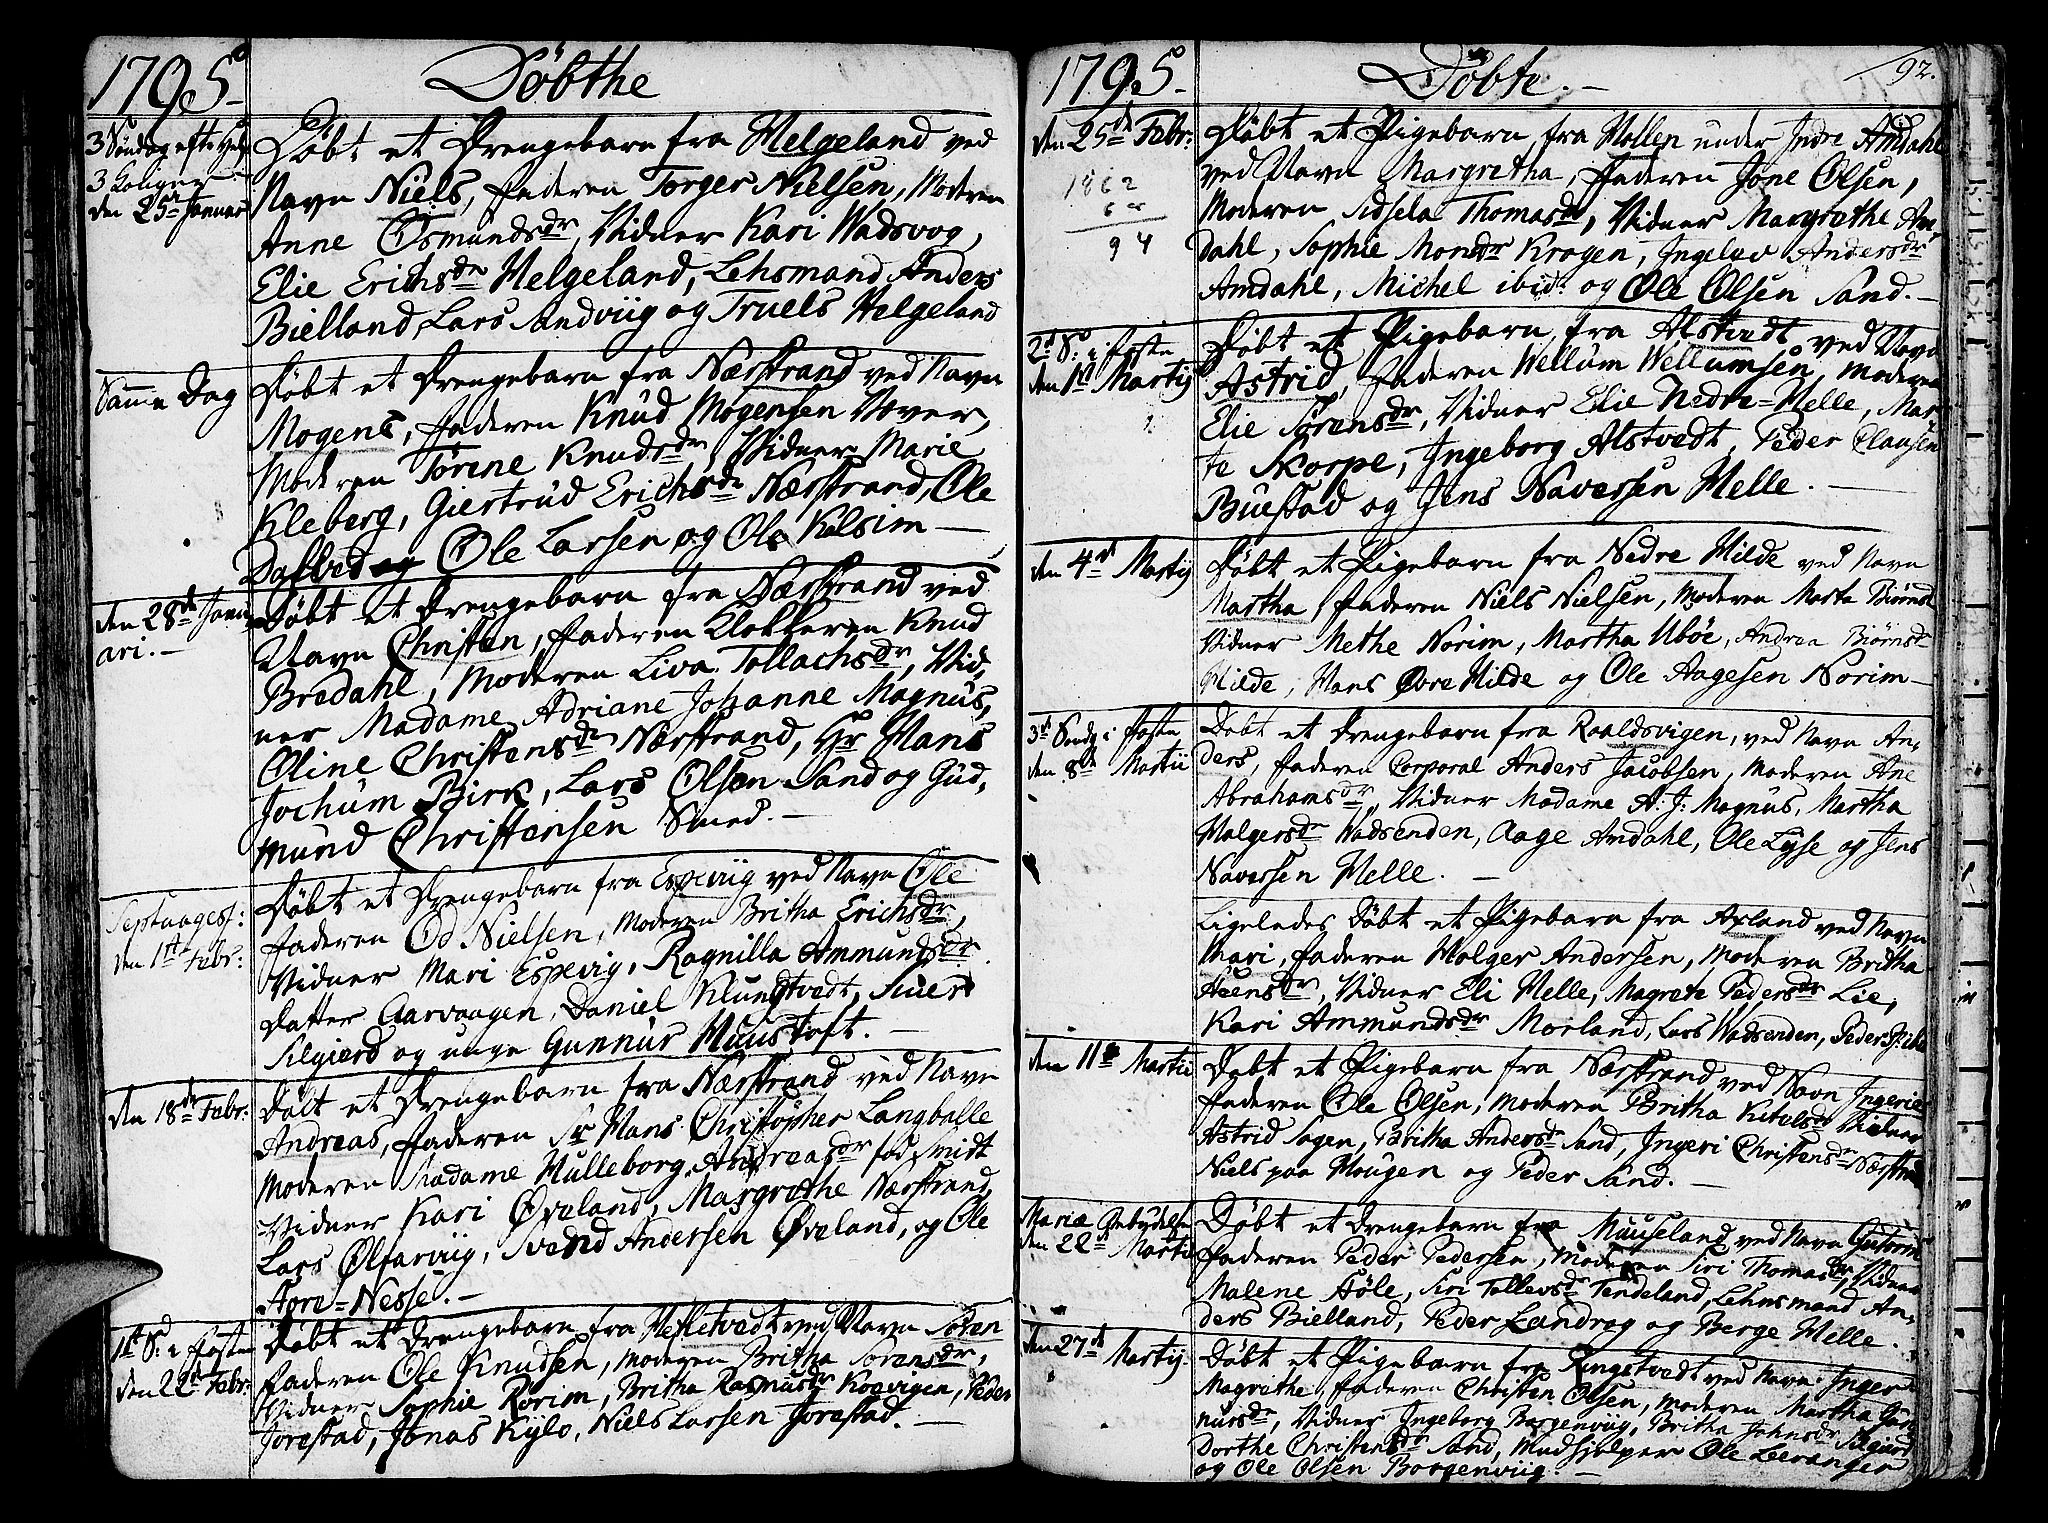 1795
Döbthe
3 Söndag efter Hel.
3 Konger
den 25de Januar
Döbt et Drengebarn fra Helgeland ved
Navn Niels, Faderen Torger Nielsen, Moderen
Anne Osmundsdr, Vidner Kari Wadsvog,
Elie Erichsdr Helgeland, Lehsmand Anders
Bielland, Lars Sandviig og Truels Helgeland
Samme Dag
Döbt et Drengebarn fra Nærstrand ved Navn
Mogens, Faderen Knud Mogensen Væver,
Moderen Torene Knudsdr, Vidner Marie
Kleberg, Giertrud Erichsdr Nærstrand, Ole
Dalbved og Ole Larsen og Ole Kalsim
den 28de Janu
ari.
Döbt et Drengebarn fra Nærstrand ved
Navn Christen, Faderen Klokkeren Knud
Bredahl, Moderen Liva Tollachsdr, Vid,
ner Madame Adriane Johanne Magnus,
Oline Christensdr Nærstrand, Hr Hans
Jochum Birk, Lars Olsen Sand og Gud,
mund Christensen Smed.
Septuagesi:
den 1ste Febr:
Döbt et Drengebarn fra Espeviig ved Navn Ole
Faderen Od Nielsen, Moderen Britha Erichsdr,
Vidner Mari Espevig, Ragnilla Ammundsdr
Datter Aarvaagen, Daniel Klungtvedt, Siuer
Silgierd og unge Gunnur Muustoft.
den 18de Febr:
Döbt et Drengebarn fra Nærstrand ved Navn
Andreas, Faderen Sr Hans Christopher Langballe
Moderen Madame Hulleborg Andreasdr fød Smidt
Vidner Kari Øveland, Margrethe Nærstrand,
Lars Ølfarviig, Svend Andersen Øveland, og Ole
Tore=Nesse.
1st S: i Faste
den 22de Febr:
Döbt et Drengebarn fra Hesletvedt ved Navn Sören
Faderen Ole Knudsen, Moderen Britha Sörensdr,
Vidner Sophie Rorim, Britha Rasmusdr Koevigen, Peder
Jorestad, Jonas Kylo, Niels Larsen Jorestad.
1795
Döbte.
92.
den 25de Febr:
1862
68
94
Döbt et Pigebarn fra Mollen under Indre Amdahl
ved Navn Margretha, Faderen Jone Olsen,
Moderen Sidsela Thomasdr, Vidner Margrethe Am,
dahl, Sophie Monsdr Krogen, Ingelev Andersdr
Amdahl, Michel ibid: og Ole Olsen Sand.
2d S: i Faste
den 1st Martij
Döbt et Pigebarn fra Alstvedt ved Navn
Astrid, Faderen Wellum Wellumsen, Moderen
Elie Sörensdr, Vidner Elie Nedre=Helle, Mar
te Skorpe, Ingeborg Alstvedt, Peder Clausen
Buestad og Jens Naversen Helle.
den 4de Martij
Döbt et Pigebarn fra Nedre Hilde ved Navn
Martha, Faderen Niels Nielsen, Moderen Marta Biörnsd
Vidner Methe Norim, Martha Uböe, Andrea Biörnsd
Hilde, Hans Övre Hilde og Ole Aagesen Norim
3de Sondg i Faste
den 8de Martii
Dobt et Drengebarn fra Roaldsvigen, ved Navn An,
ders, Faderen Corporal Anders Jacobsen, Moderen Ane
Abrahamsdr, Vidner Madame A: J: Magnus, Martha
Holgersdr Wadsenden, Aage Amdahl, Ole Lyse og Jens
Naversen Helle.
Ligeledes Döbt et Pigebarn fra Axland ved Navn
Mari, Faderen Holger Andersen, Moderen Britha
Steensdr, Vidner Eli Helle, Magrete Pedersdr Lie,
Kari Ammundsdr Morland, Lars Wadsenden, Peder
den 11te Martii
Dobt et Pigebarn fra Nærstrand ved Navn Ingerie
Faderen Ole Olsen, Moderen Britha Kitelsdr Vidner
Astrid Sagen, Britha Andersdr Sand, Ingeri Christensdr Nærstrand
Niels paa Hougen og Peder Sand.
Mariæ Bebydelse
den 22de Martii
Döbt et Drengebarn fra Muuseland ved Navn Gutorm
Faderen Peder Pedersen, Moderen Siri Thomasdr, Vidner
Malene Stöle, Siri Tollevsdr Tendeland, Lehnsmand An,
ders Bielland, Peder Landrog og Berge Helle.
den 27de Martij.
Döbt et Pigebarn fra Ringetvedt ved Navn Inger
Magrethe, Faderen Christen Olsen, Moderen Martha Gun
nursdr, Vidner Ingeborg Borgenviig, Britha Johnsdr Silgierd
Dorthe Christensdr Sand, Mudhjelper Ole Leranger
og Ole Olsen Borgenviig.